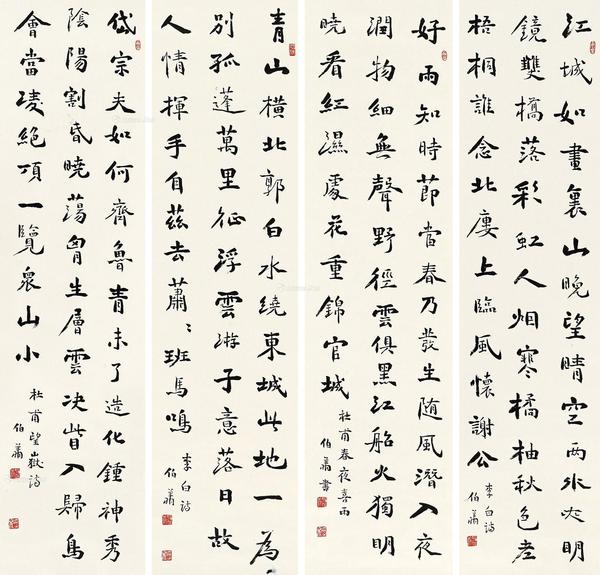 江城如畫裏山晚望晴空兩水夾明
鏡雙橋落彩虹人烟寒橘柚秋色老
梧桐誰念北樓上臨風懷謝公
李白詩
伯
好雨知時節當春乃發生随風潛入夜
潤物細無聲野徑雲俱黑江船火獨明
曉看紅濕處花重錦官城
杜甫春夜喜雨
伯 書
青山橫北郭白水繞東城此地一為
別孤蓬萬里征浮雲游子意落日故
人情揮手自茲去蕭〻班馬鳴
李白詩
伯
岱宗夫如何齊魯青未了造化鍾神秀
陰陽割昏曉蕩胷生層雲決眥入歸鳥
會當凌絕頂一覽眾山小
杜甫望嶽詩
伯